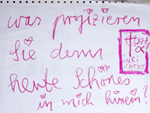 was projizieren
Sie denn
heute Schönes
in mich hinein?